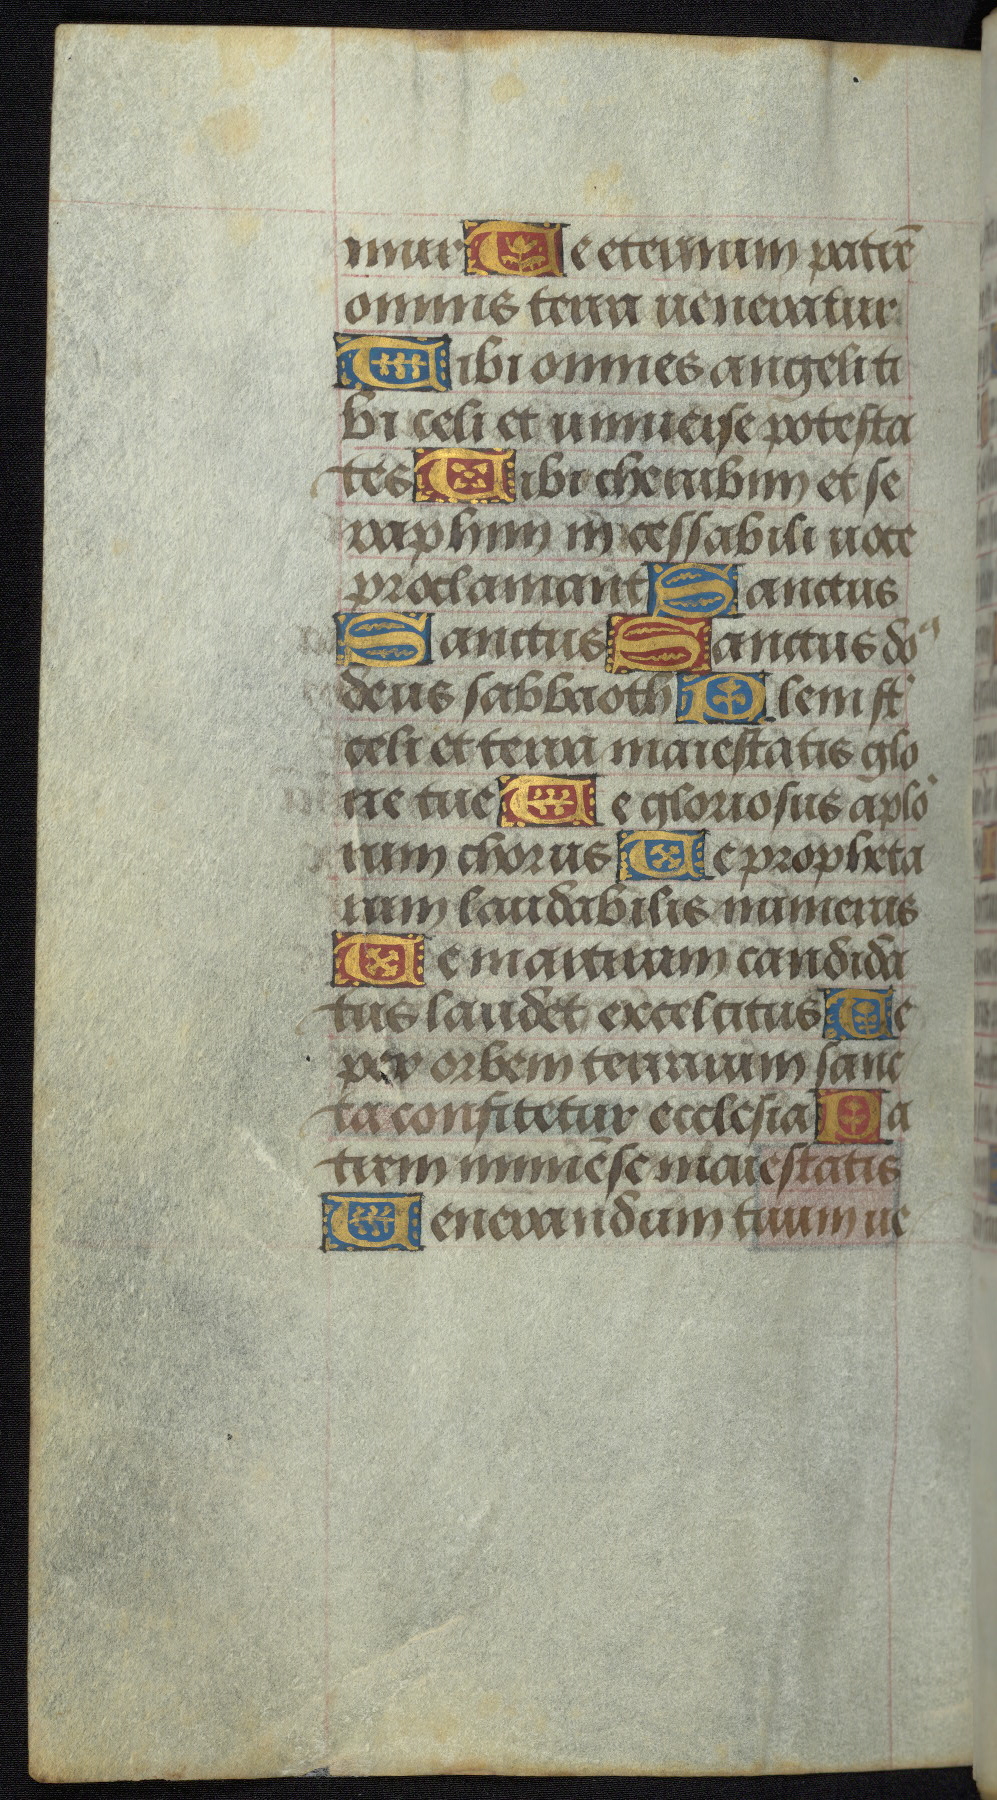 mur Te eternum patrē
omnis terra ueneratur
Tibi omnes angeli ti
bi celi et uniuerse potesta
tes Tibi cherubim et se
raphim in cessabili uoce
proclamant Sanctus
Sanctus Sanctus doꝰ
deus sabbaoth Pleni st̄
celi et terra maiestatis glo
rie tue Te gloriosus aplo'
rum chorus Te propheta
rum laudabilis numerus
Te martirum candida
tus laudet excercitus Te
per orbem terrarum sanc
ta confitetur ecclesia Pa
trem immēse maiestatis
Uenerandum tuum ue